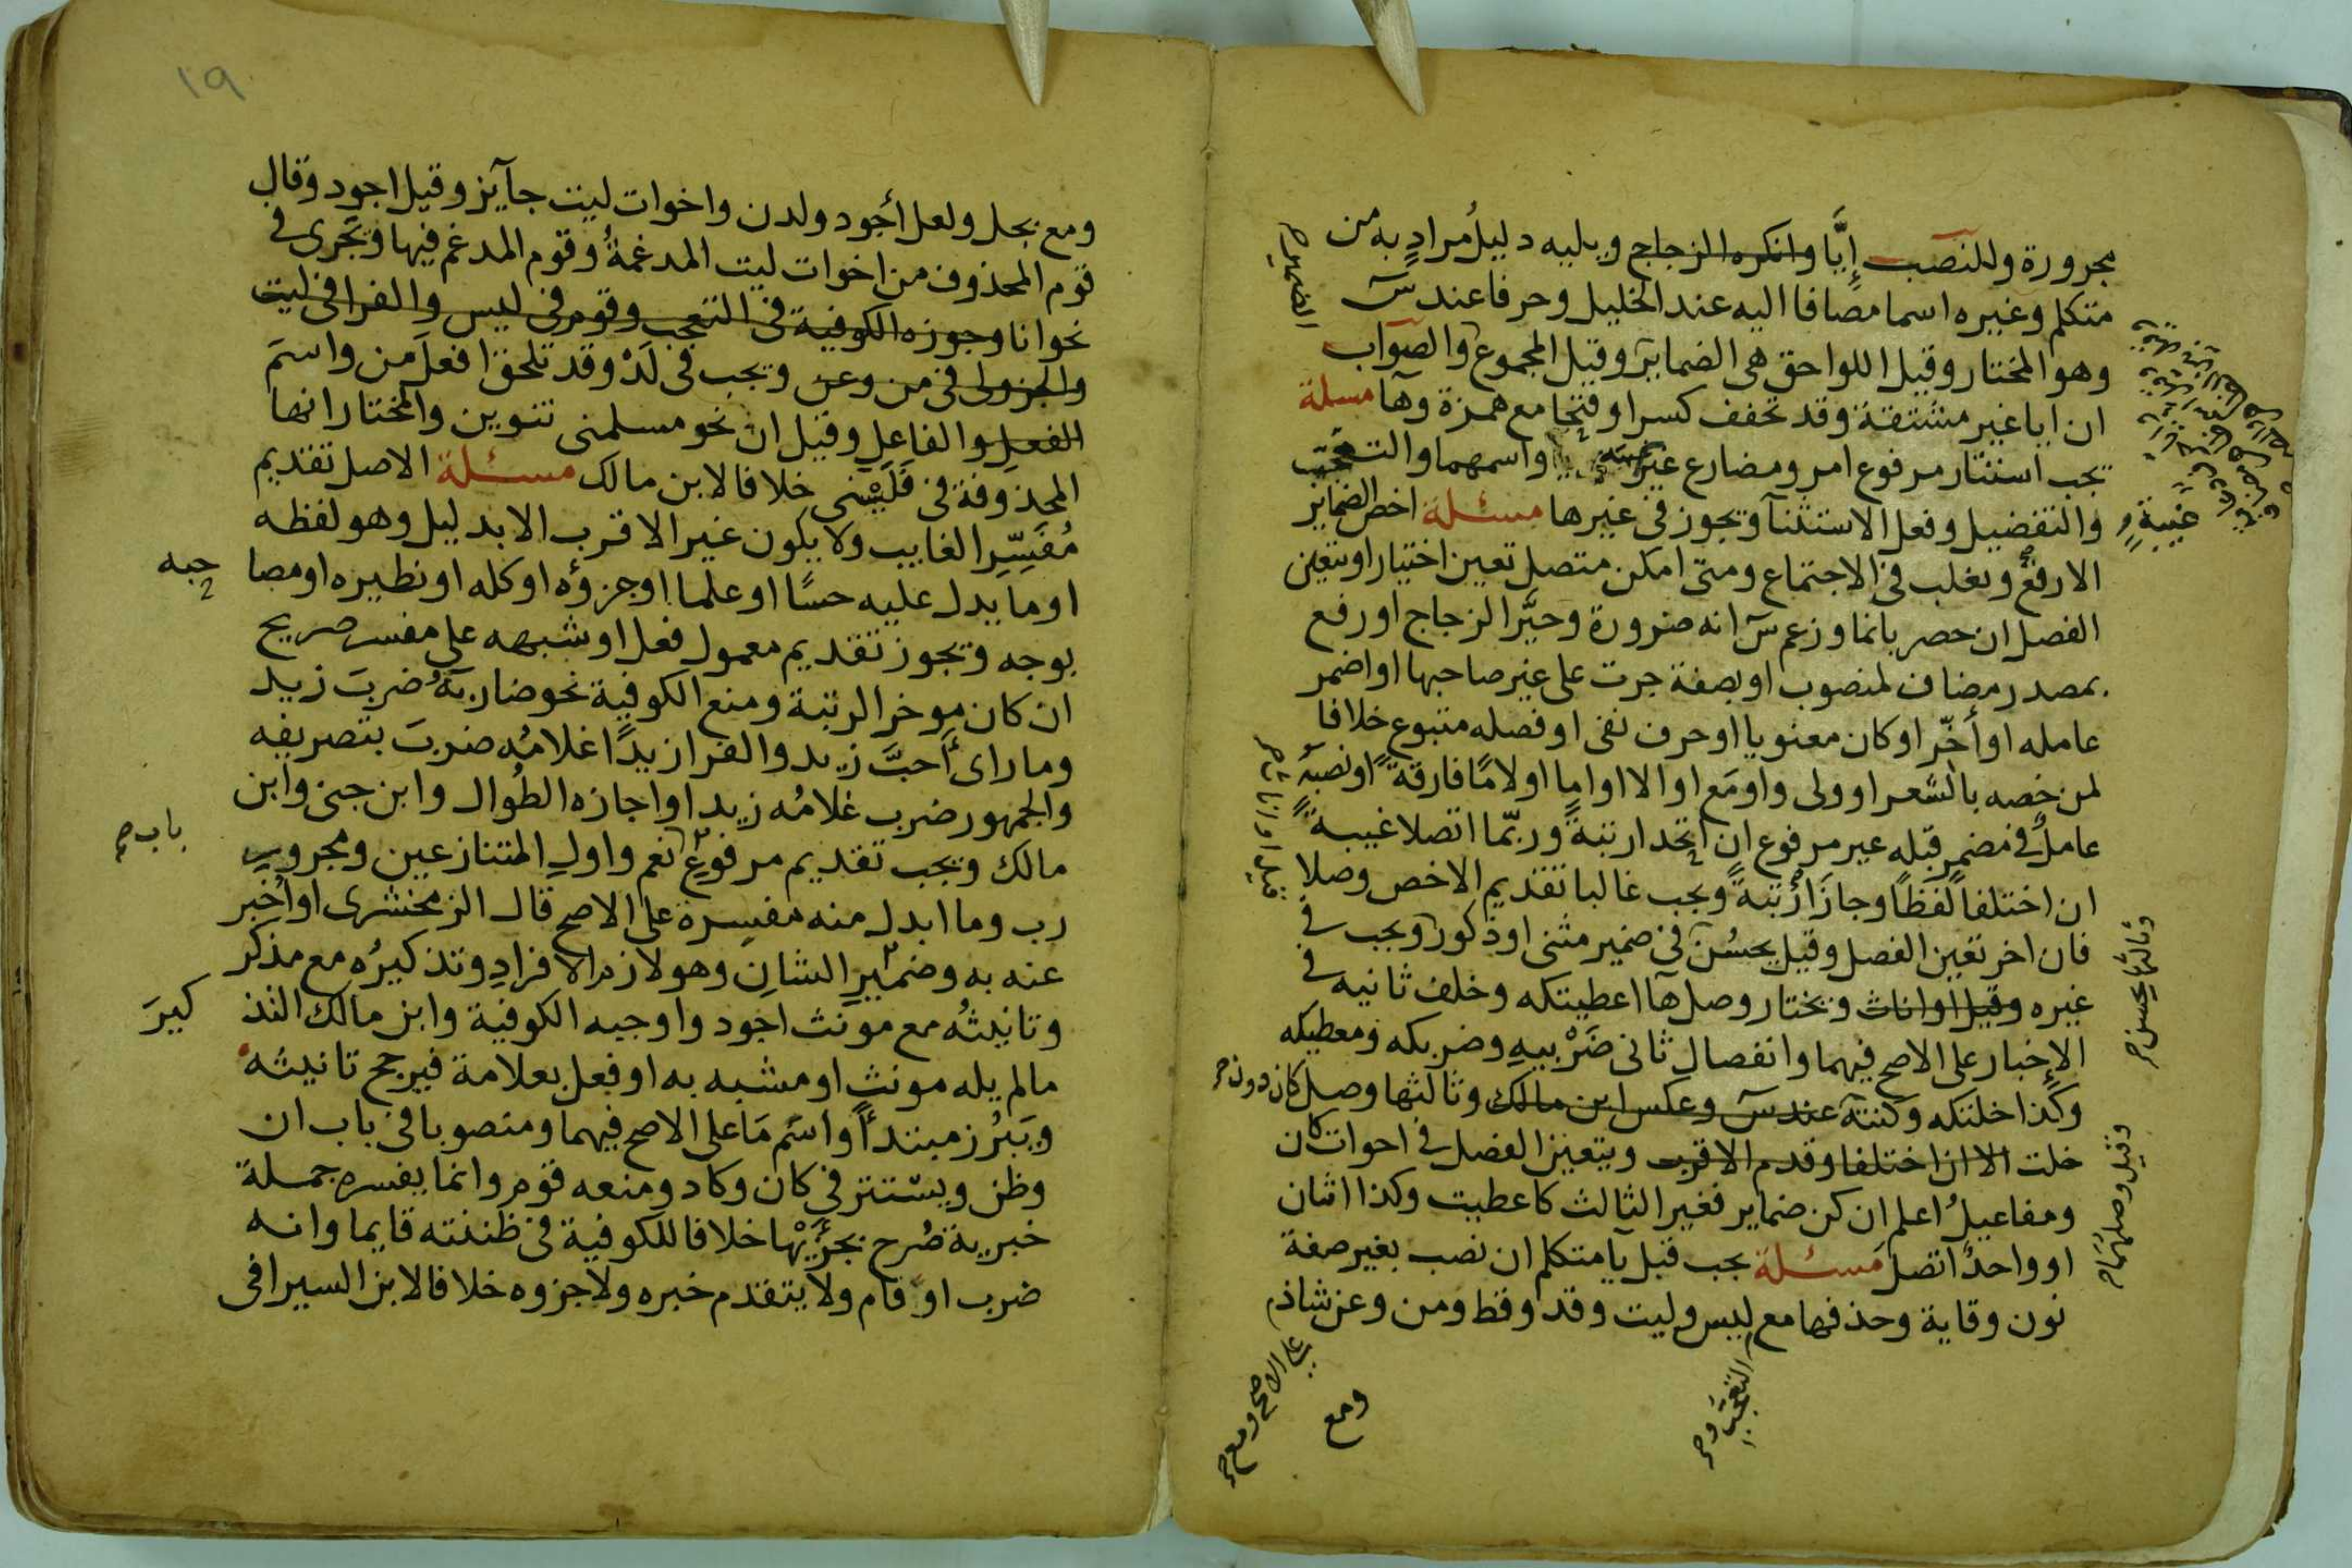 مجرورة وللنصب إيَّا وانكره الزجاج ويليه دليلُ مرادٍ به من
متكلم وغيره اسما مضافا اليه عند الخليل وحرفا عند س
وهو المختار وقيل اللواحق هى الضماير وقيل المجموع والصواب
ان ايا غير مشتقة وقد تخفف كسرا وفتحا مع همزة وها مسلة
يجب استتار مرفوع امر ومضارع غير واسمهما والتعجب
والتفضيل وفعل الاستثنآ ويجوز فى غيرها مسئلة اخص الضماير
الارفع ويغلب فى الاجتماع ومتى امكن متصل تعين اختيارا ويتعين
الفصل ان حصر بانما وزعم س انه ضرورة وخيَّر الزجاج او رفع
بمصدر مضاف لمنصوب او بصفة جرت على غير صاحبها او اضمر
عامله او أخّر او كان معنويا او حرف نفى او فصله متبوع خلافا
لمن خصه بالشعر او ولى واو مَع او الا او اما او لامًا فارقة او نصبه
عاملٌ فى مضمر قبله غير مرفوع ان اتحدا رتبة وربّما اتصلا غيبة
ان اختلفا لفظًا وجازَ أرتبةً ويجب غالبا تقديم الاخص وصلا
فان اخر تعين الفصل وقيل يحسُن فى ضمير مثنى او ذكور ويجب فى
غيره وقيل او اناث ويختار وصل ها اعطيتكه وخلف ثانيه فى
الإخبار على الاصح فيهما وانفصال ثانى ضَرْبيهِ وضربكه ومعطيكه
وكذا خلتكه وكنته عند س وعكس ابن مالك وثالثها وصل كان دون
خلت الا ان اختلفا وقدم الاقرب ويتعين الفصل فى اخوات كان
ومفاعيلُ اعلم ان كن ضماير فغير الثالث كاعطيت وكذا اثنان
او واحدٌ اتصل مَسئلة يجب قبل يآ متكلم ان نصب بغير صفة
نون وقاية وحذفها مع ليس وليت وقد وقط ومن وعن شاذ
غيبةٍ و
وثالثها يحسن
وقيل وصلهما
التعجب و
على الاصح ومع
ومع
١٩
ومع بجل ولعل أجود ولدن واخوات ليت جآيز وقيل اجود وقال
قوم المحذوف من اخوات ليت المدغمةُ وقوم المدغم فيها وتجرى فى
نحو انا وجوزه الكوفية فى التعجب وقوم فى ليس والفرا فى ليت
والجزولى فى من وعن ويجب فى لَدْ وقد تلحق افعلَ من واسمَ
الفعلِ والفاعلِ وقيل ان نحو مسلمنى تنوين والمختار انها
المحذوفة فى فَلَيْنى خلافا لابن مالك مسئلة الاصل تقديم
مُفَسِّرِ الغايب ولا يكون غير الاقرب الا بدليل وهو لفظه
او ما يدل عليه حسًا او علما او جزؤه او كله او نظيره او مصا حبه
بوجه ويجوز تقديم معمول فعل او شبهه على مفسر صريح
ان كان موخر الرتبة ومنع الكوفية نحو ضاربَهُ ضربَ زيد
وما راى أَحبَّ زيد والفرا زيدًا غلامُه ضربَ بتصريفه
والجمهور ضرب غلامُه زيدا واجازه الطُوال وابن جنى وابن
مالك ويجب تقديم مرفوع نعم واولِ المتنازعين ومجرورِ باب
رب وما ابدل منه مفسِرة على الاصح قال الزمخشرى او أُخبر
عنه به وضميرِ الشانِ وهو لازم الافرادِ وتذكيرُه مع مذكر
وتانيثُه مع مونث اجود واوجبه الكوفية وابن مالك التذ كيرَ
ما لم يله مونث او مشبه به او فعل بعلامة فيرجح تانيثه
ويَبرُز مبتدأً واسَم مَا على الاصح فيهما ومنصوبا فى باب ان
وظن ويستتر فى كان وكاد ومنعه قوم وانما يفسره جملة
خبرية صُرح بجزَّيْها خلافا للكوفية فى ظننته قايما وانه
ضرب او قام ولا يتقدم خبره ولا جزوه خلافا لابن السيرافى